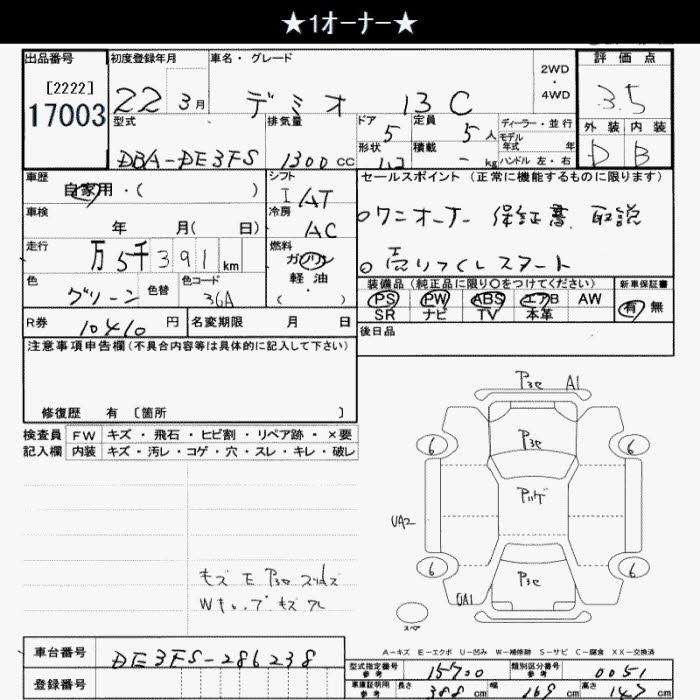 ★1ｵｰﾅｰ★
出品番号
[2222]
17003
初度登録年月
22 3月
車名・グレード
デミオ 13C
2WD
・
4WD
評価点
3.5
外装 内装
D B
型式
DBA-DE3FS
排気量
1300 cc
ドア
5
定員
5人
形状
積載
- kg
ディーラー・並行
モデル
年式 年
ハンドル 左・右
車歴
自家用・( )
シフト
IAT
車検
年 月( 日)
冷房
AC
走行
万5千391km
燃料
ガソリン
軽油
( )
色
グリーン
色替
色コード
36A
セールスポイント (正常に機能するものに限ります)
○ワンオーナー 保証書 取説
○売りつくしスタート
装備品(純正品に限り○をつけてください)
PS PW ABS エアB AW
SR ナビ TV 本革
新車保証書
有 無
R券
10410円
名変期限 月 日
後日品
注意事項申告欄(不具合内容等は具体的に記入して下さい)
修復歴 有 〔箇所 〕
検査員 FW キズ・飛石・ヒビ割・リペア跡・×要
記入欄 内装 キズ・汚レ・コゲ・穴・スレ・キレ・破レ
キズ E
Wキップ キズ
P3c A1
P3c
6 6
Pハゲ
UA2
6 6
P3c
UA1
スペア
A-キズ E-エクボ U-凹み W-補修跡 S-サビ C-腐食 XX-交換済
車台番号
DE3FS-286238
登録番号
型式指定番号
参考
15700
類別区分番号
参考
0051
車庫証明用
参考
長さ 388cm 幅 169cm 高さ 147cm